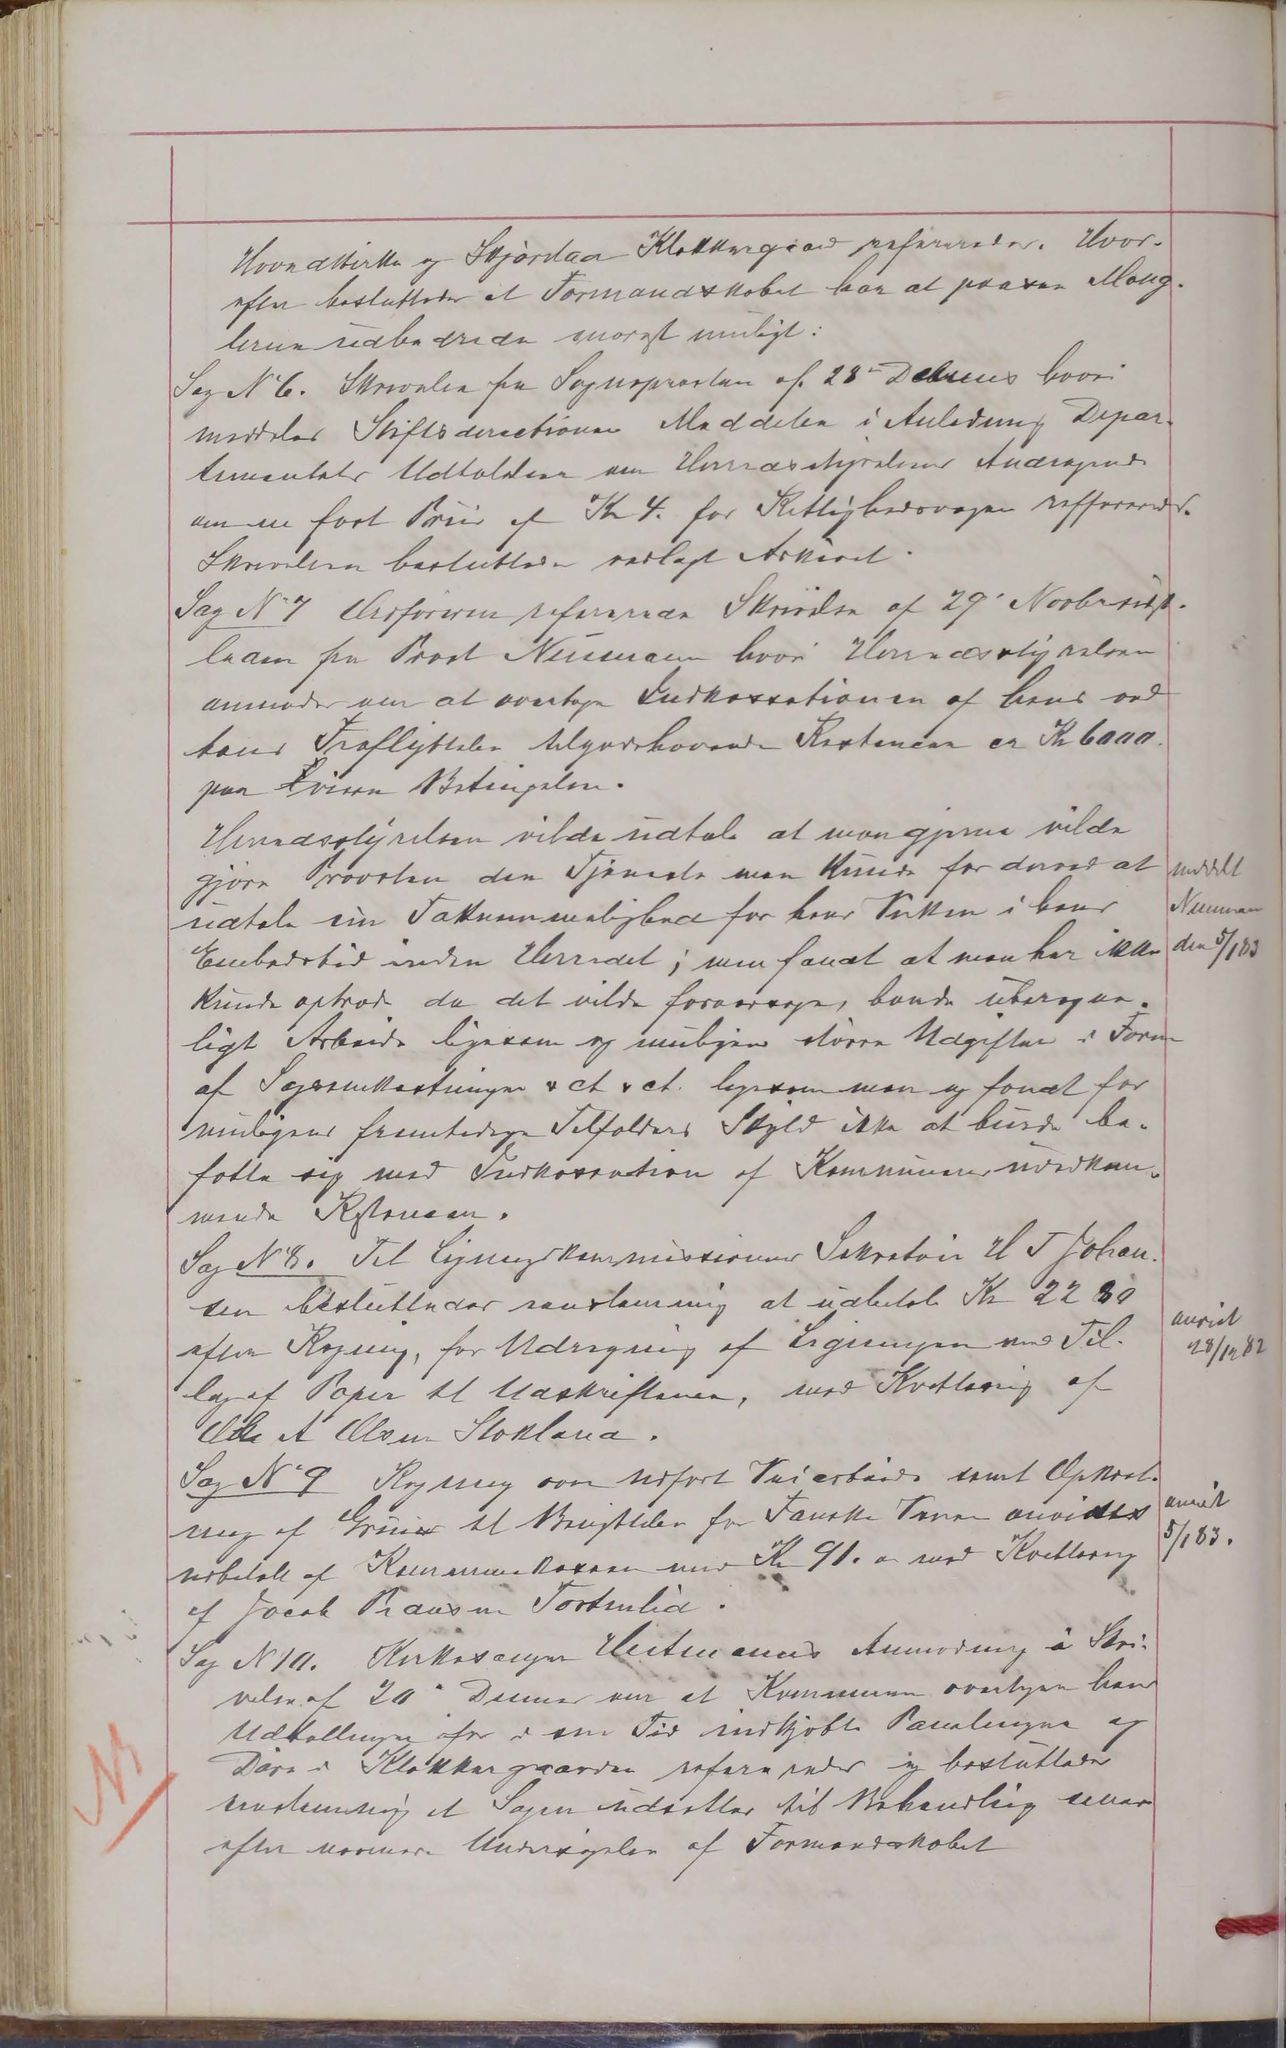 Hovedkirke og Skjerdaa Klokkergaard refereredes. Hvor-
efter besluttedes at Formandskabet har at paase Mang-
lerne udbedrede snarest muligt:
Sag N 6. Skrivelse fra Sognepræsten af 28de Debr hvori
meddeles Stiftsdirectionens Meddelelse i Anledning Depar-
tementets Udtalelse om Herredsstyrelsens Andragende
om en fast Priis af Kr 4. for refereredes.
Skrivelsen besluttedes vedlagt Arkivet.
Sag N 7 Ordføreren refererede Skrivelse af 29' Novbr sidst-
leden fra Provst Neumann hvori Herredsstyrelsen
anmodes om at overtage Indkassationen af hans ved
hans Fraflyttelse tilgodehavende Restancer ca Kr 6000.
paa visse Betingelser.
Herredsstyrelsen vilde udtale at man gjerne vilde
gjøre Provsten den Tjeneste man kunde for derved at
udtale sin Taknemmelighed for hans Virken i hans
Embedstid inden Herredet; men fandt at man her ikke
kunde optræde da det vilde foraarsage, baade ubereigne-
ligt Arbeide ligesom og muligens større Udgifter i Form
af Sagsomkostninger &ct &ct. ligesom man og fandt for
muligens fremtidige Tilfælders Skyld ikke at burde be-
fatte sig med Indkassation af Kommunen uvedkom-
mende Restancer.
Sag N 8. Til Ligningskommissionens Sekretær H T Johan-
sen besluttedes enstemmig at udbetale Kr 22 80
efter Regning, for Udregning af Ligningen med Til-
læg af Papir til Udskrifterne, mod Kvittering af
Ole A Olsen Stokland.
Sag N 9 Regning over udført Veiarbeide samt Opkast-
ning af Gruus til Benyttelse for Fauske Veien anvistes
udbetalt af Kommunekassen med Kr 91. mod Kvittering
af Jacob Pedersen Tortenlid.
Sag N 10. Kirkesanger Heitmanns Anmodning i Skri-
velse af 20de Dennes om at Kommunen overtager hans
Udtællinger for i sin Tid indkjøbte Panelinger og
Døre i Klokkergaarden refereredes og besluttedes
enstemmig at Sagen udsættes til Behandling senere
efter nærmere Undersøgelse af Formandskabet
meddelt
Neuman
den 5/1 83
anvist
28/12 82
anvist
5/1 83.